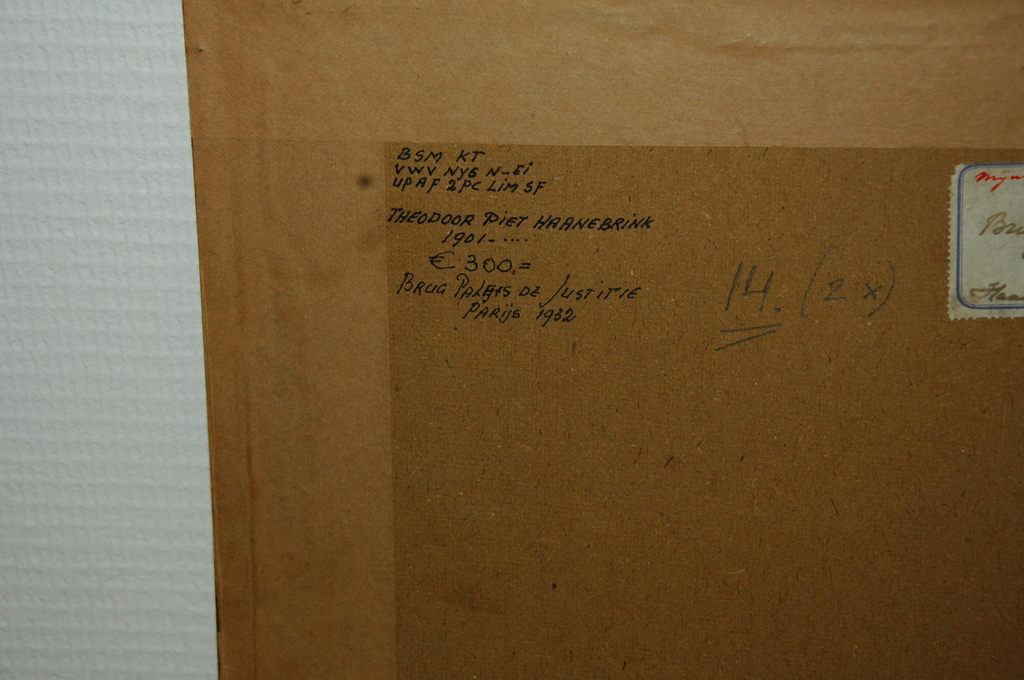 BSM KT
VWV NYG N-EI
UPAF 2PC LIM SF
THEODOOR PIET HAANEBRINK
1901-....
€ 300,=
BRUG PALEIS DE JUSTITIE
PARIJS 1932
14. (2 x)
Mijn
Bru
Haa